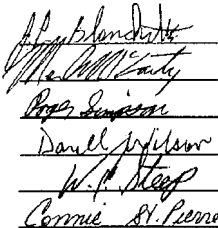 Blanchette
McCarty
Roger Simpson
Darell Wilson
W. P. Steep
Connie St. Pierre